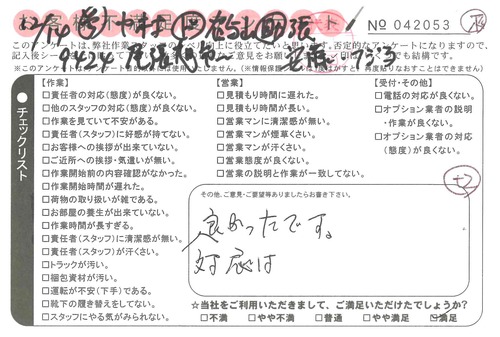 お客様不満アンケート
No 042053
このアンケートは、弊社作業スタッフのレベル向上に役立てたいと思います。否定的なアンケートになりますので、
※このアンケートは
(※情報保護シールをはがすと、再度貼りなおすことはできません)
チェックリスト
【作業】
□責任者の対応(態度)が良くない。
□他のスタッフの対応(態度)が良くない。
□作業を見ていて不安がある。
□責任者(スタッフ)に好感が持てない。
□お客様への挨拶が出来ていない。
□ご近所への挨拶・気遣いが無い。
□作業開始前の内容確認がなかった。
□作業開始時間が遅れた。
□荷物の取り扱いが雑である。
□お部屋の養生が出来ていない。
□作業時間が長すぎる。
□責任者(スタッフ)に清潔感が無い。
□責任者(スタッフ)が汗くさい。
□トラックが汚い。
□梱包資材が汚い。
□運転が不安(下手)である。
□靴下の履き替えをしてない。
□スタッフにやる気がみられない。
【営業】
□見積もり時間に遅れた。
□見積もり時間が長い。
□営業マンに清潔感が無い。
□営業マンが煙草くさい。
□営業マンが汗くさい。
□営業態度が良くない。
□営業の説明と作業が一致してない。
【受付・その他】
□電話の対応が良くない。
□オプション業者の説明
・作業が良くない。
□オプション業者の対応
(態度)が良くない。
その他、ご意見・ご要望等ありましたらお書き下さい。
良かったです。
対応は
☆当社をご利用いただきまして、ご満足いただけたでしょうか?
□不満 □やや不満 □普通 □やや満足 ☑満足